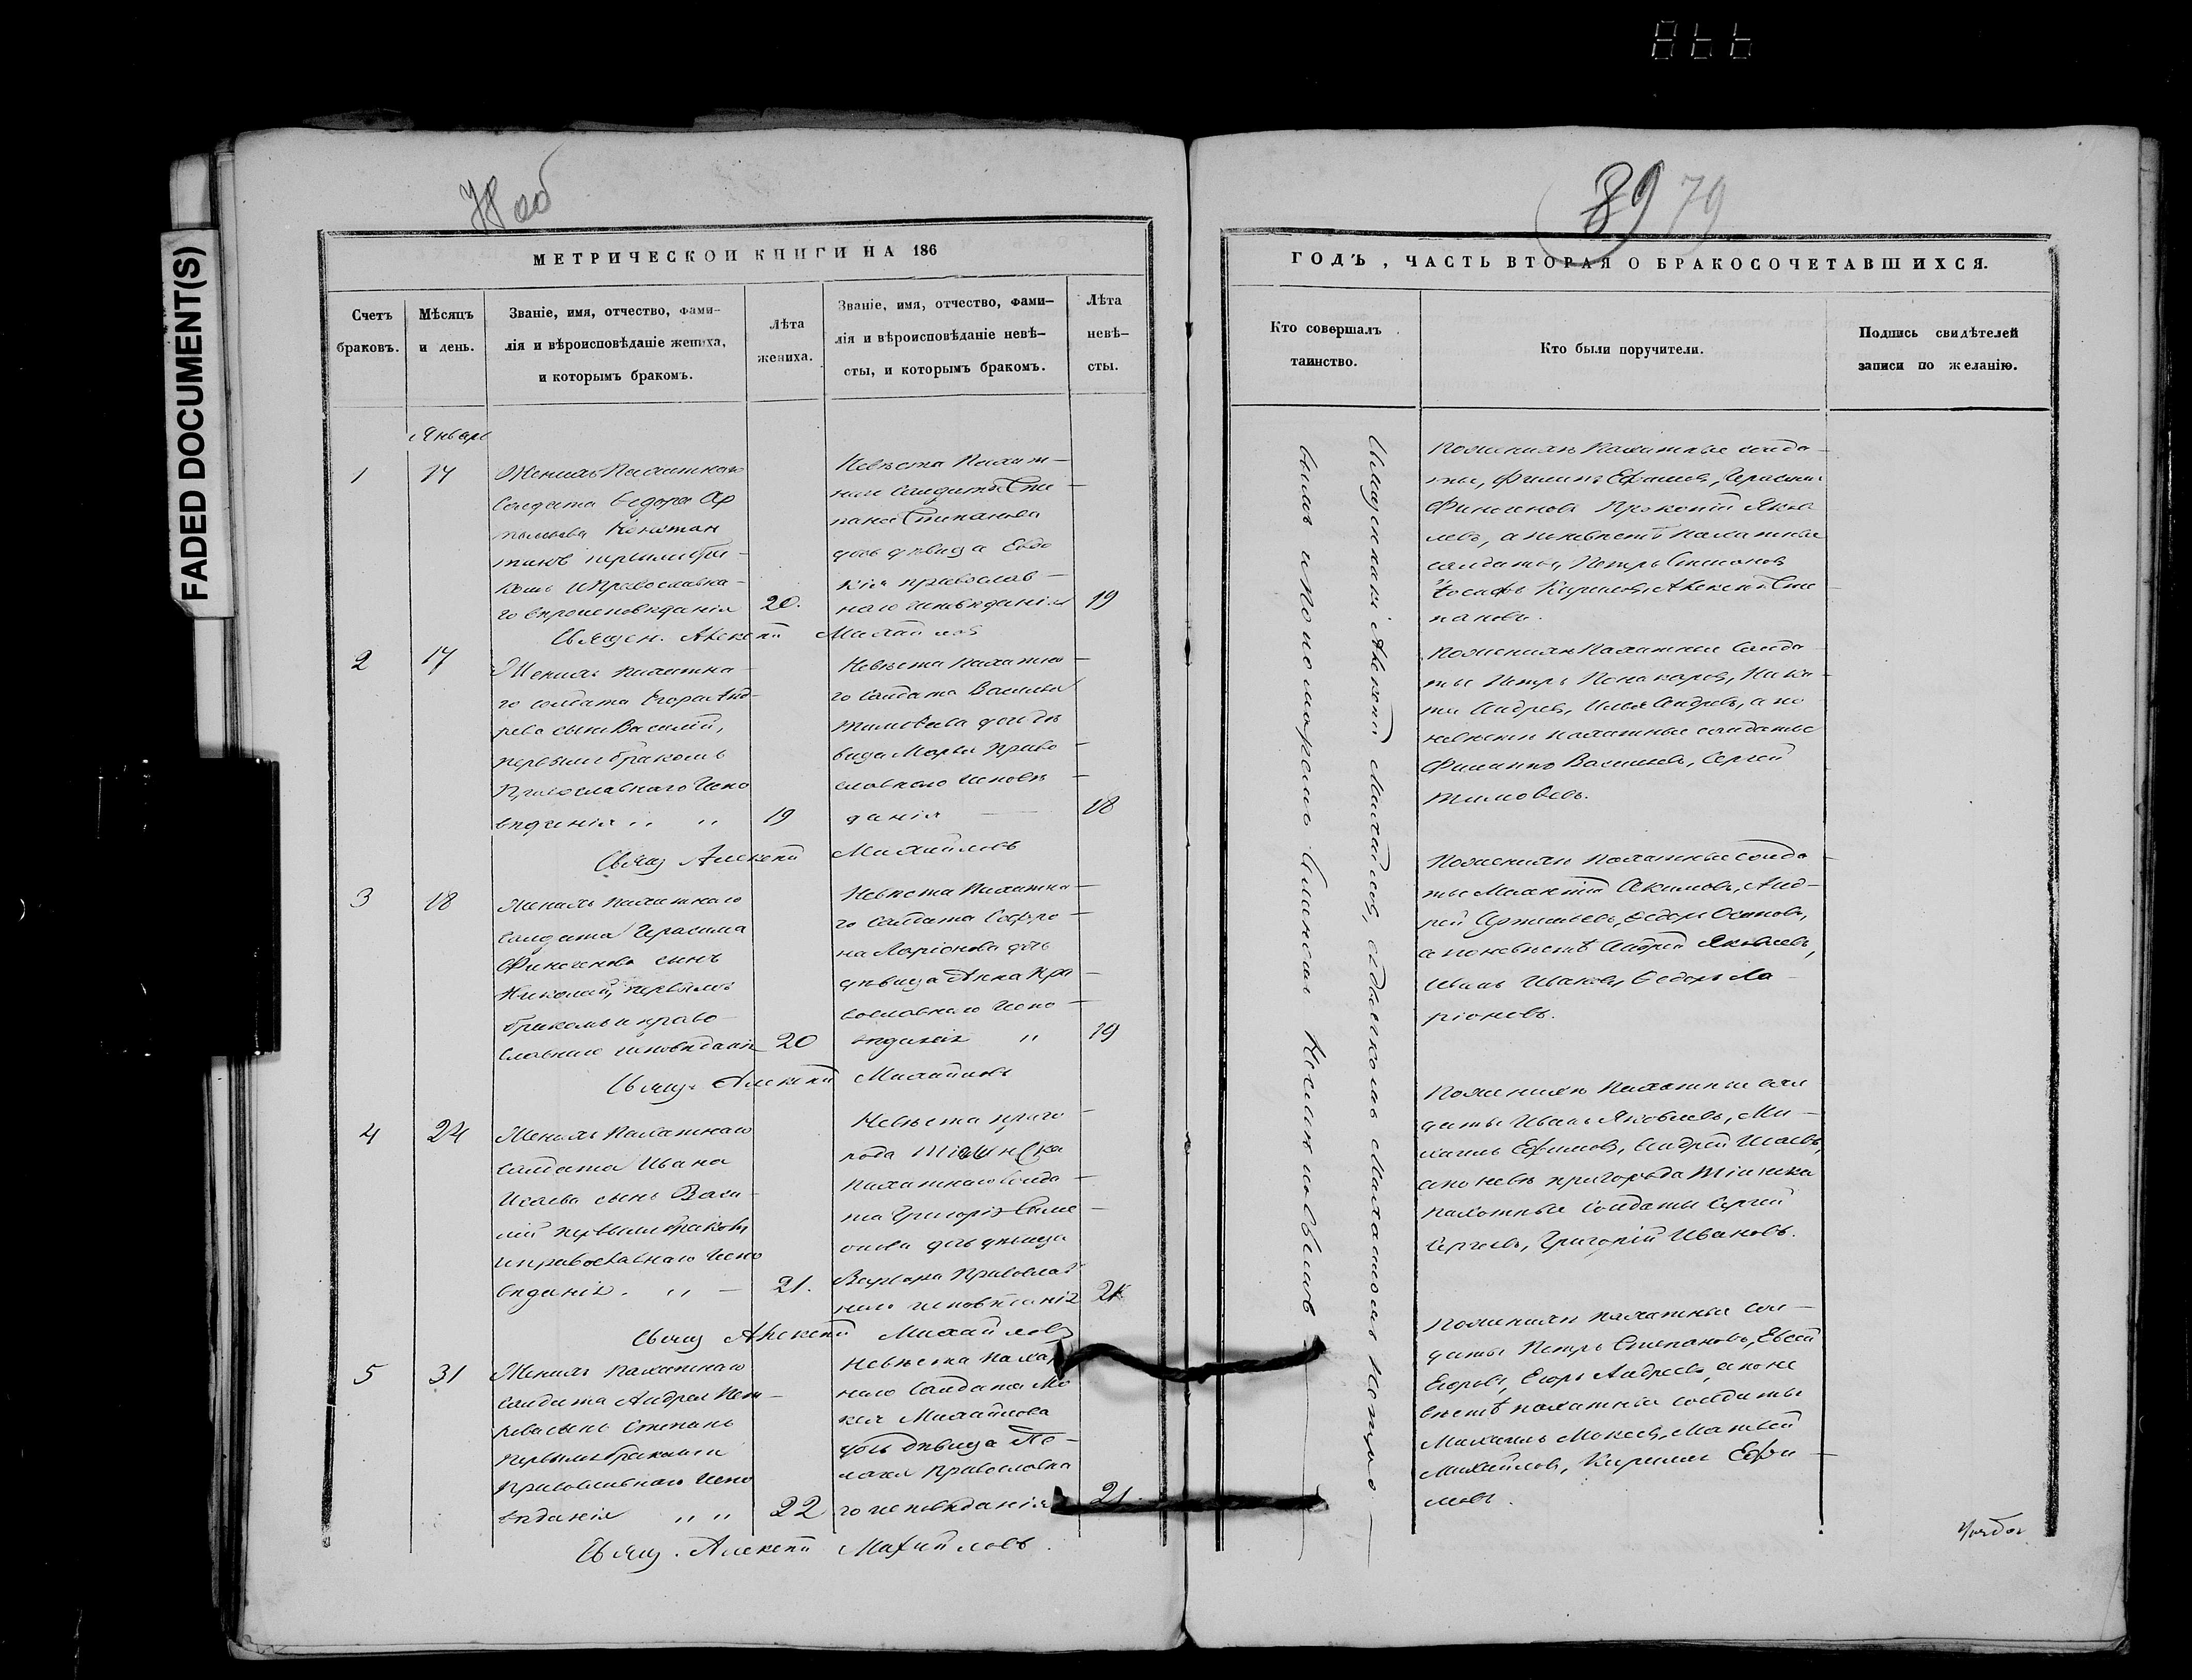 FADED DOCUMENT(S)
78 об
МЕТРИЧЕСКОИ КНИГИ НА 186
Счетъ браковъ.
Мѣсяцъ и день.
Званіе, имя, отчество, фами-
лія и вѣроисповѣданіе жениха,
и которымъ бракомъ.
Лѣта
жениха.
Званіе, имя, отчество, фами-
лія и вѣроисповѣданіе невѣ-
сты, и которымъ бракомъ.
Лѣта
невѣ-
сты.
Январь
1
17
Женихъ Пахатнаго
Солдата Ѳедора Ар
первымъ бра-
комъ и Православна-
го вѣроисповѣданія
20.
Невѣста Пахат-
наго Солдата Сте-
пана Степанова
дочь дѣвица Евдо
кія православ-
наго исповѣданія
19
Священ. Алексѣй Михайловъ
2
17
Женихъ пахатна-
го солдата Егора Анд-
реева сынъ Василій,
первымъ бракомъ
Православнаго Испо
вѣданія " "
19
Невѣста пахатна-
го Солдата Василья
Тимоѳеева дочь дѣ
вица Марья Право-
славнаго исповѣ-
данія
18
Свящ Алексѣй Михайловъ
3
18
Женихъ пахатнаго
Солдата Герасима
Финогенова сынъ
Николай, первымъ
бракомъ и право-
славнаго исповѣданія
20
Невѣста Пахатна-
го Солдата Софро-
на Ларіонова дочь
дѣвица Анна Пра-
вославнаго Испо-
вѣданія "
19
Свящ. Алексѣй Михайловъ
4
24
Женихъ Пахатнаго
Солдата Ивана
Исаева сынъ Васи-
лій первымъ бракомъ
и православнаго Испо
вѣданія. " -
21.
Невѣста приго-
рода Тіинска
пахатнаго Солда-
та Григорія Симе-
онова дочь дѣвица
Варвара Православ
наго исповѣданія
21
Свящ Алексѣй Михайловъ
5
31
Женихъ Пахатнаго
Солдата Андрея Пет-
рова сынъ Степанъ
первымъ бракомъ и
Православнаго Испо
вѣданія " "
22
Невѣста пахат
наго Солдата Мо
кея Михайлова
дочь дѣвица Пе-
лагея Православна
го исповѣданія
21
Свящ. Алексѣй Михайловъ.
89 79
ГОДЪ, ЧАСТЬ ВТОРАЯ О БРАКОСОЧЕТАВШИХСЯ.
Кто совершалъ
таинство.
Кто были поручители.
Подпись свидѣтелей
записи по желанію.
Священникъ Алексѣй Михайловъ, съ дьякономъ
и пономаремъ
По женихѣ Пахатные солда-
ты, Филипъ Ефимовъ, Герасимъ
Финогеновъ Прокопій Яков
левъ, а по невѣстѣ Пахатные
солдаты, Петръ Степановъ
Іосифъ Кириловъ, Алексѣй Сте-
пановъ.
По женихѣ Пахатные Солда-
ты Петръ, Ники-
та Андреевъ, Илья Андреевъ, а по
невѣстѣ пахатные солдаты
Филиппъ Васильевъ, Сергѣй
Тимоѳеевъ.
По женихѣ пахатные солда-
ты Акимовъ, Анд-
рей Артемьевъ, Ѳедоръ Осиповъ,
а по невѣстѣ Андрей Яковлевъ,
Иванъ Ивановъ, Ѳедоръ Ла-
ріоновъ.
По женихѣ Пахатные сол
даты Иванъ Яковлевъ, Ми-
хаилъ Ефимовъ, Андрей Исаевъ,
а по невѣ пригорода Тіинска
пахотные солдаты Сергѣй
Сергѣевъ, Григорій Ивановъ.
По женихѣ пахатные сол-
даты Петръ Степановъ, Евсей
Егоровъ, Егоръ Андреевъ, а по не
вѣстѣ пахатніе солдаты
Михаилъ Мокеевъ, Матвей
Михайловъ, Кирилъ Ефи-
мовъ.